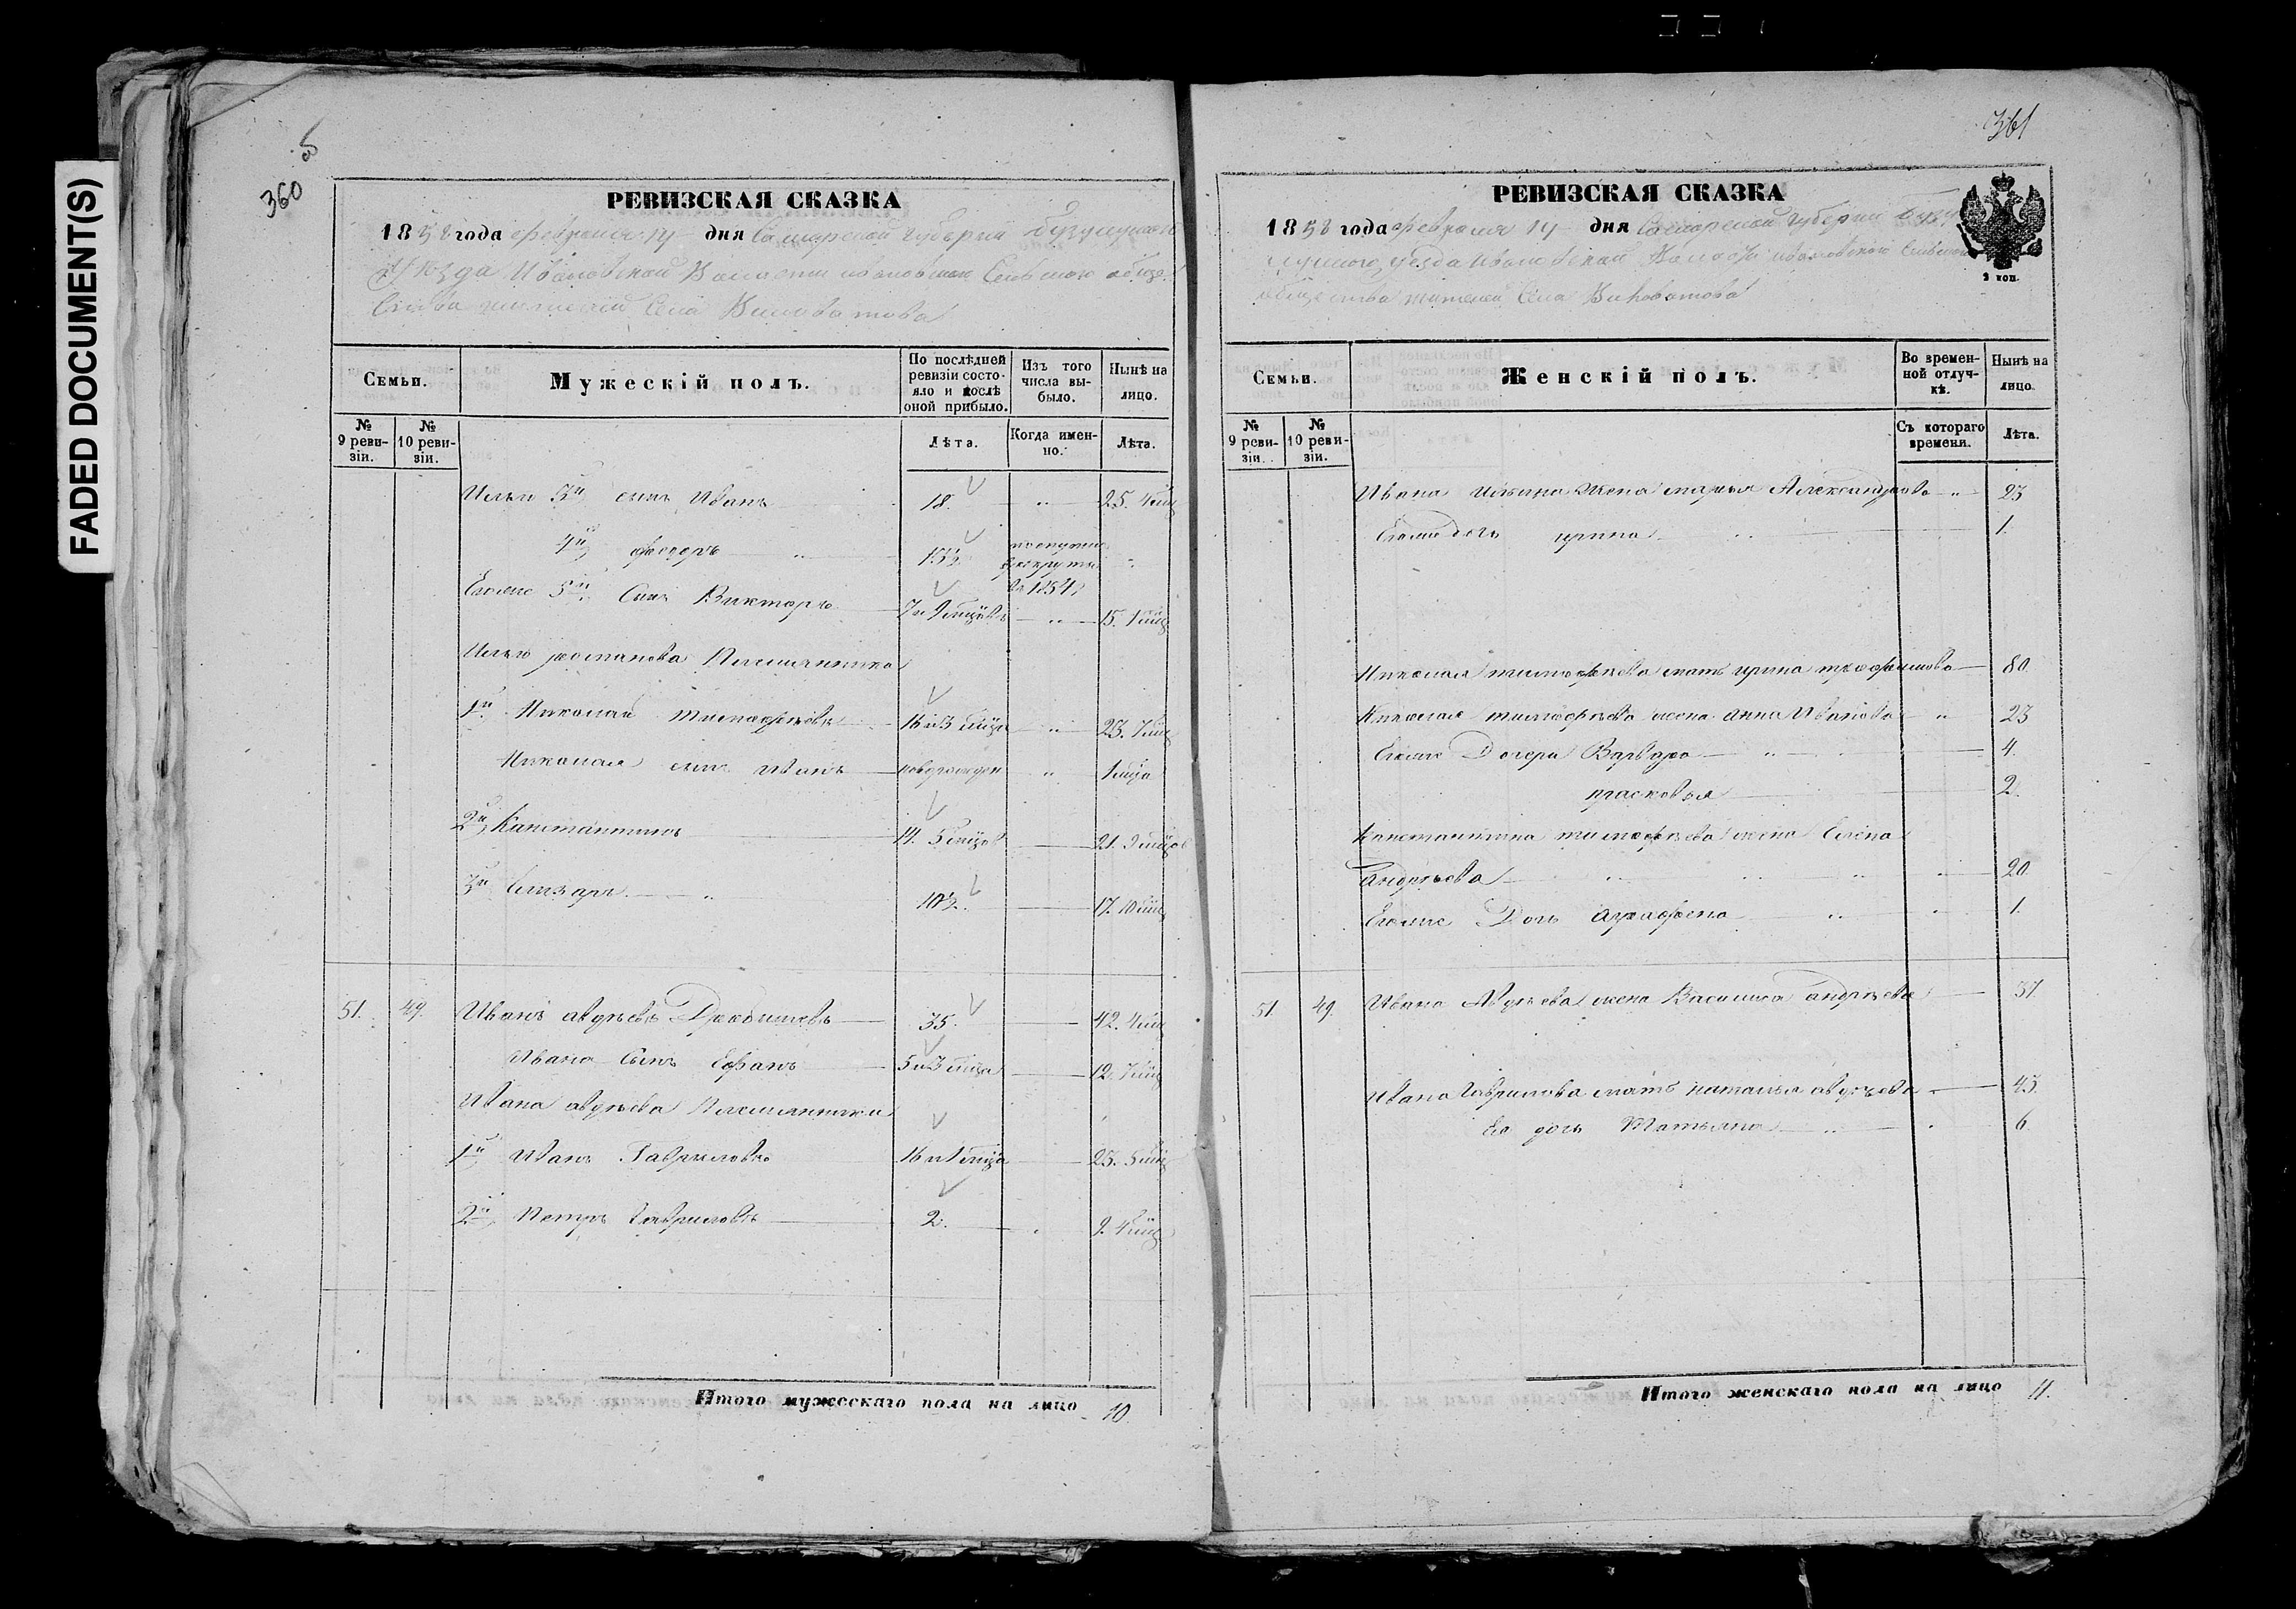 FADED DOCUMENT(S)
об
360
РЕВИЗСКАЯ СКАЗКА
1858 года февраля 14 дня Самарской губернии Бузулукска
Уѣзда Ивановской Волости Ивановскаго Сельскаго обще
ства жителей Села Виловатова
Семьи.
Мужескій полъ.
По послѣдней ревизіи состояло и послѣ оной прибыло.
Изъ того числа выбыло.
Нынѣ на лицо.
№ 9 ревизіи.
№ 10 ревизіи.
Лѣта.
Когда именно.
Лѣта.
Ильи 3й сынъ Иванъ 18. " 25. 4 мц
4й федоръ " 15½ поступил в рекруты въ 1854 "
Еголже 5й Сынъ Викторъ 7 и 9 мцовъ " 15. 1 мц
Ильи романова Племянника
1й Николай тимофѣевъ 16 и 3 мца " 23. 7 мц
Николая сынъ Иванъ новорожден " 1 мца
2й Канстантинъ 14. 5 мцов 21. 9 мцов
3й Елизаръ " 10½ 17. 10 мц
51. 49. Иванъ авдѣевъ 35. 42. 4 мц
Ивана Сынъ Ефанъ 5 и 3 мца 12. 7 мц
Ивана авдѣева Племянники
1й Иванъ Гавриловъ 16 и 1 мца 23. 5 мц
2й Петръ Гавриловъ 2. 9. 4 мц
Итого мужескаго пола на лицо 10.
361
РЕВИЗСКАЯ СКАЗКА
1858 года февраля 14 дня Самарской губернии Бузу
лукскаго уѣзда Ивановской Волости Ивановскаго Сельскаго
общества жителей Села Виловатова
2 коп.
Семьи.
Женскій полъ.
Во временной отлучкѣ.
Нынѣ на лицо.
№ 9 ревизіи.
№ 10 ревизіи.
Съ котораго времени.
Лѣта.
Ивана Ильина жена марья Александрова " 23
Еголже дочь ирина " 1.
Николая тимофѣева мать ирина трофимова 80.
Николая тимофѣева жена анна Иванова " 23
Еголже Дочери Варвара " 4.
прасковья 2.
Канстантина тимофѣева жена Елена
андрѣева " 20.
Еголже Дочь аграфена " 1.
51. 49. Ивана Авдѣева жена Василиса андрѣева 37.
Ивана Гаврилова мать наталья авдѣева 45.
Ея дочь Татьяна " 6
Итого женскаго пола на лицо 11.